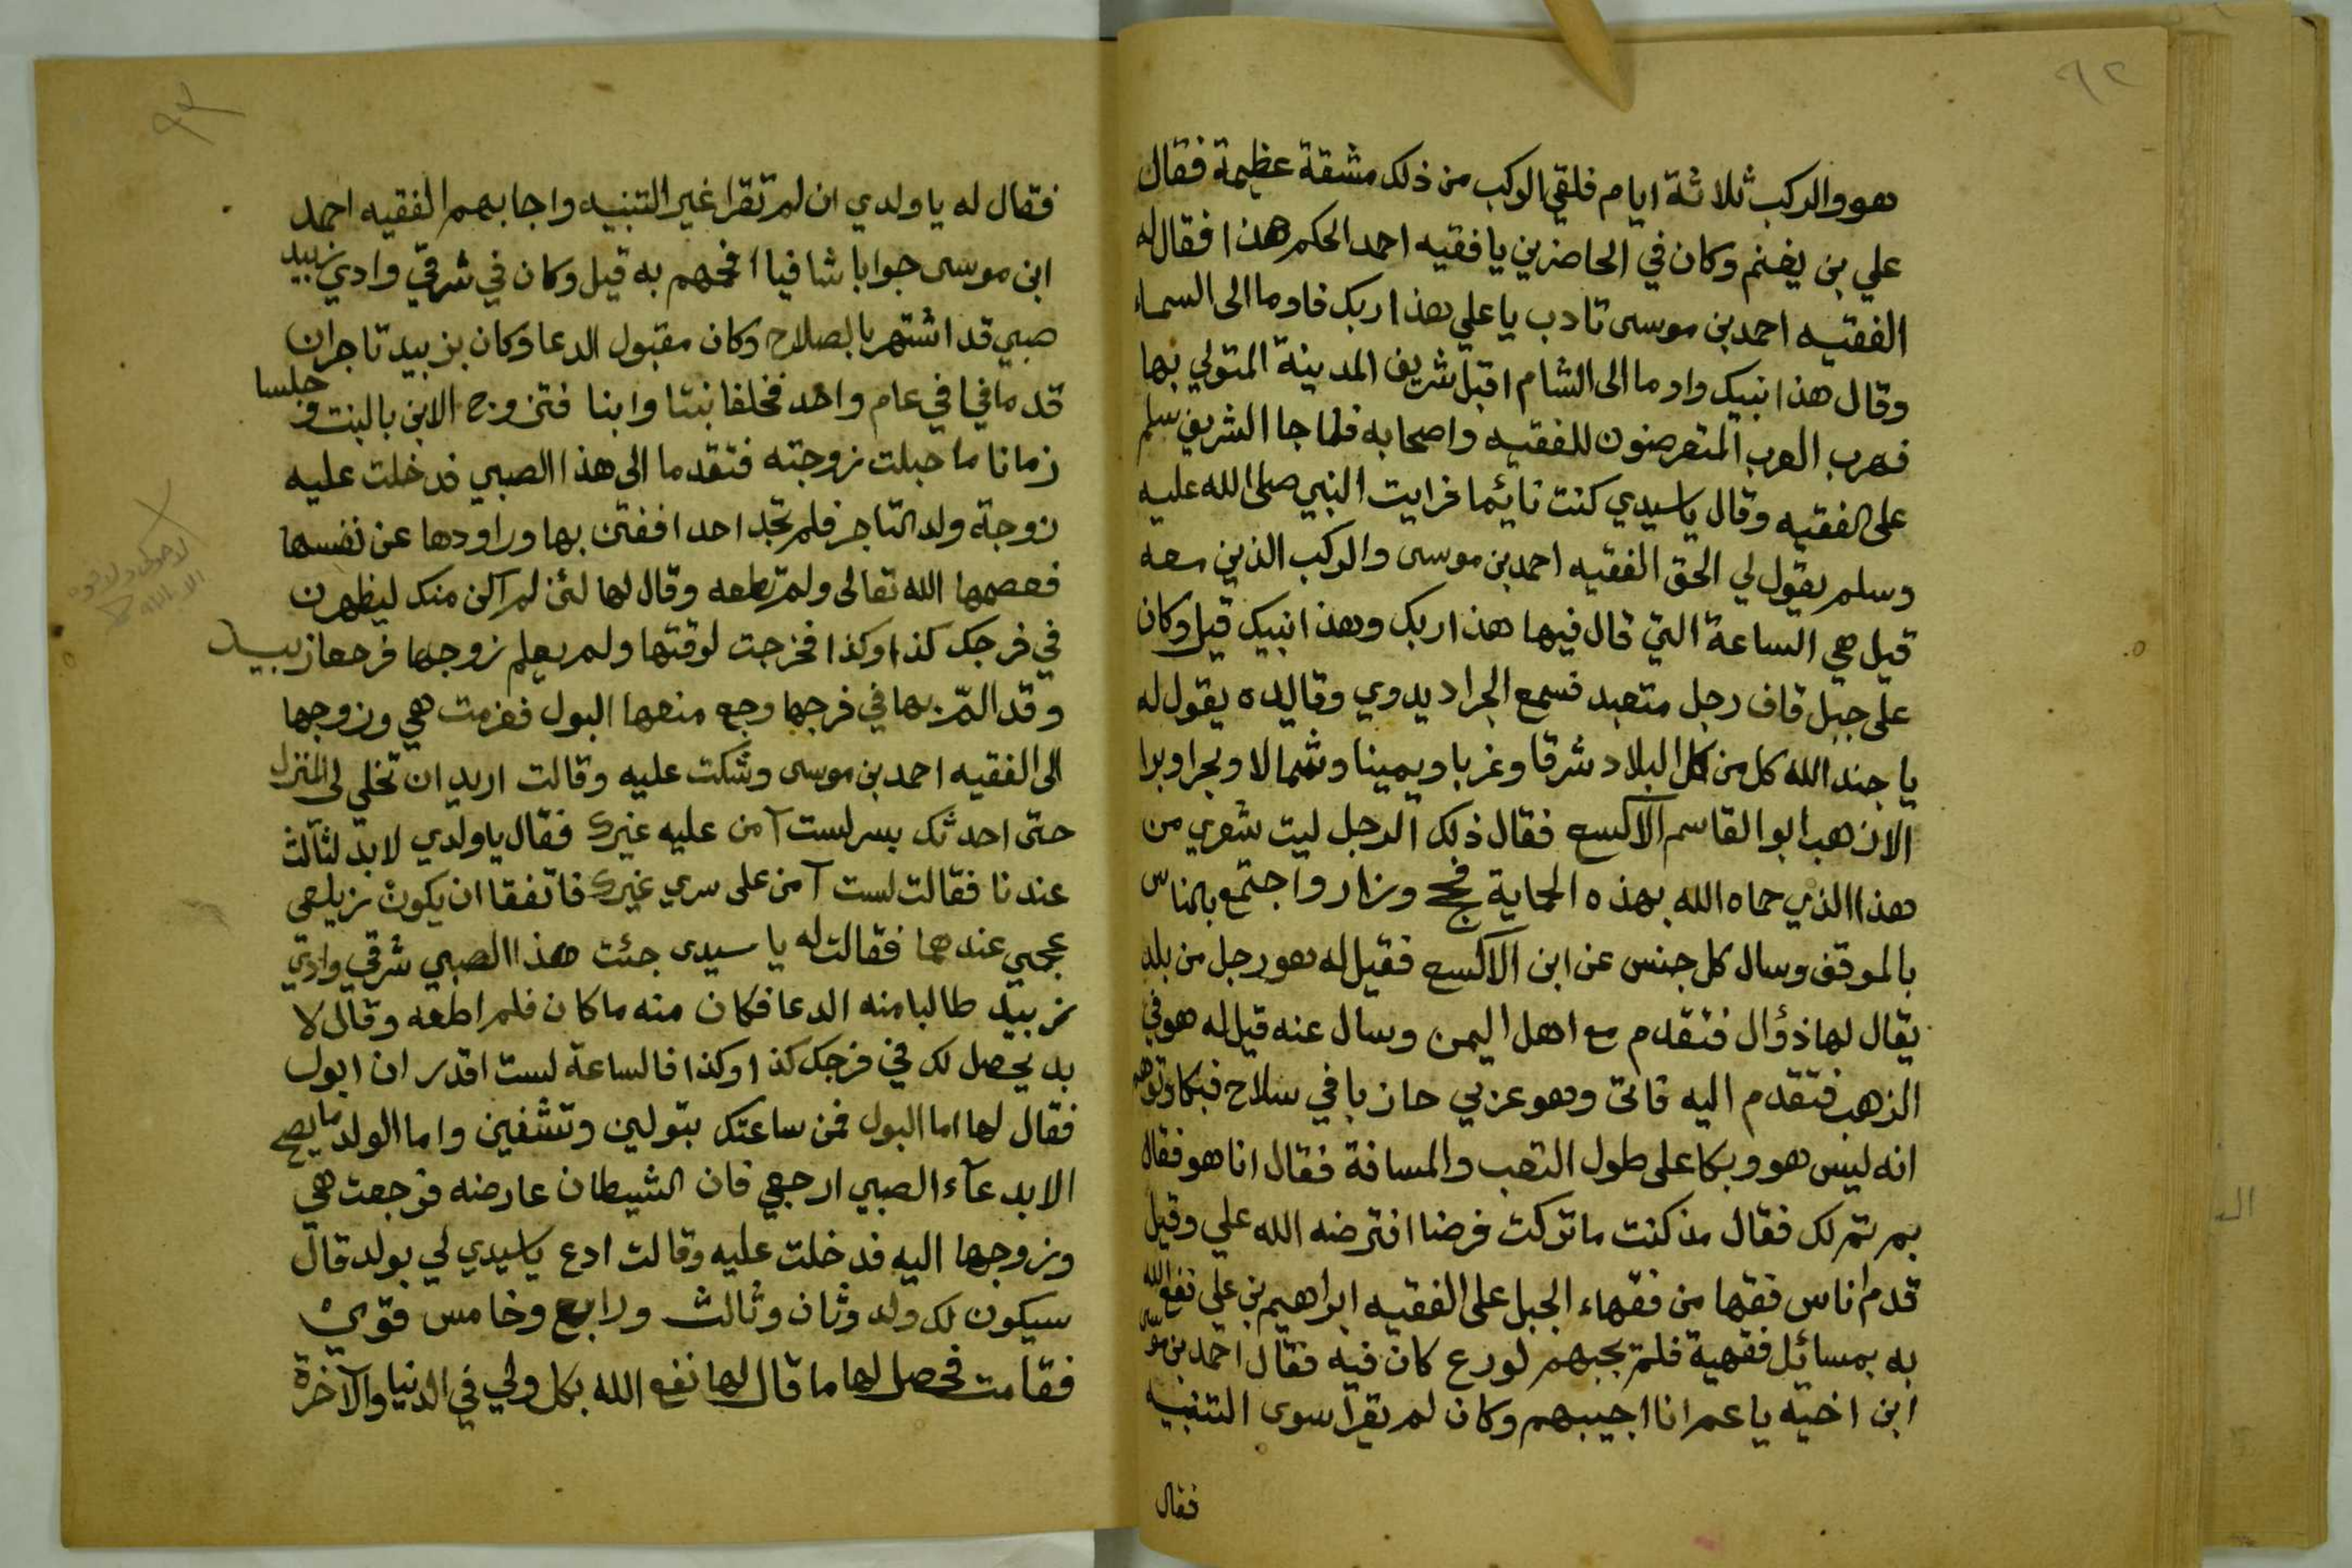 ٩٢
هو والركب ثلاثة ايام فلقي الركب من ذلك مشقة عظيمة فقال
علي بن يغنم وكان في الحاضرين يا فقيه احمد الحكم هذا فقال له
الفقيه احمد بن موسى تادب يا علي هذا ربك فاوما الى السماء
وقال هذا نبيك واوما الى الشام اقبل شريف المدينة المتولي بها
فهرب العرب المتعرضون للفقيه واصحابه فلما جا الشريف سلم
على الفقيه وقال يا سيدي كنت نائيما فرايت النبي صلى الله عليه
وسلم يقول لي الحق الفقيه احمد بن موسى والركب الذين معه
قيل هي الساعة التي قال فيها هذا ربك وهذا نبيك قيل وكان
على جبل قاف رجل متعبد فسمع الجراد يدوي وقايده يقول له
يا جند الله كل من كل البلاد شرقا وغربا ويمينا وشمالا وبحرا وبرا
الا ذهب ابو القاسم الاكسع فقال ذلك الرجل ليت شعري من
هذا الذي حماه الله بهذه الحماية فحج وزار واجتمع بالناس
بالموقف وسال كل جنس عن ابن الاكسع فقيل له هو رجل من بلد
يقال لها ذؤال فتقدم مع اهل اليمن وسال عنه قيل له هو في
الذهب فتقدم اليه فاتى وهو عزبي حازبا في سلاح فبكا وتوهم
انه ليس هو وبكا على طول التعب والمسافة فقال انا هو فقال
بم تم لك فقال مذ كنت ما تركت فرضا افترضه الله علي وقيل
قدم اناس فقها من فقهاء الجبل على الفقيه ابراهيم بن علي نفع الله
به بمسائل فقهية فلم يجبهم لورع كان فيه فقال احمد بن موسى
ابن اخيه يا عم انا اجيبهم وكان لم يقرا سوى التنبيه
فقال
٩٣
فقال له يا ولدي ان لم تقرا غير التنبيه واجابهم الفقيه احمد
ابن موسى جوابا شافيا افحمهم به قيل وكان في شرقي وادي زبيد
صبي قد اشتهر بالصلاح وكان مقبول الدعا وكان بزبيد تاجران
قد مافيا في عام واحد فخلفا بنتا وابنا فتزوج الابن بالبنت وجلسا
زمانا ما حبلت زوجته فتقدما الى هذا الصبي فدخلت عليه
زوجة ولد التاجر فلم تجد احدا ففتن بها وراودها عن نفسها
فعصمها الله تعالى ولم تطعه وقال لها لئن لم اكن منك ليظهرن
في فرجك كذا وكذا فخرجت لوقتها ولم يعلم زوجها فرجعا زبيد
وقد الم بها في فرجها وجع منعها البول فعزمت هي وزوجها
الى الفقيه احمد بن موسى وشكت عليه وقالت اريد ان تخلي لي المنزل
حتى احدثك بسر لست آمن عليه غيرك فقال يا ولدي لابد لثالث
عندنا فقالت لست آمن على سري غيرك فاتفقا ان يكون زيلعي
عجمي عندهما فقالت له يا سيدى جئت هذا الصبي شرقي وادي
زبيد طالبا منه الدعا فكان منه ما كان فلم اطعه وقال لا
بد يحصل لك في فرجك كذا وكذا فالساعة لست اقدر ان ابول
فقال لها اما البول فمن ساعتك تبولين وتشفين واما الولد ما يصح
الا بدعآء الصبي ارجعي فان الشيطان عارضه فرجعت هي
وزوجها اليه فدخلت عليه وقالت ادع يا سيدي لي بولد قال
سيكون لك ولد وثان وثالث ورابع وخامس قوّمي
فقامت فحصل لها ما قال لها نفع الله بكل ولي في الدنيا والآخرة
لا حول ولا قوة
الا بالله